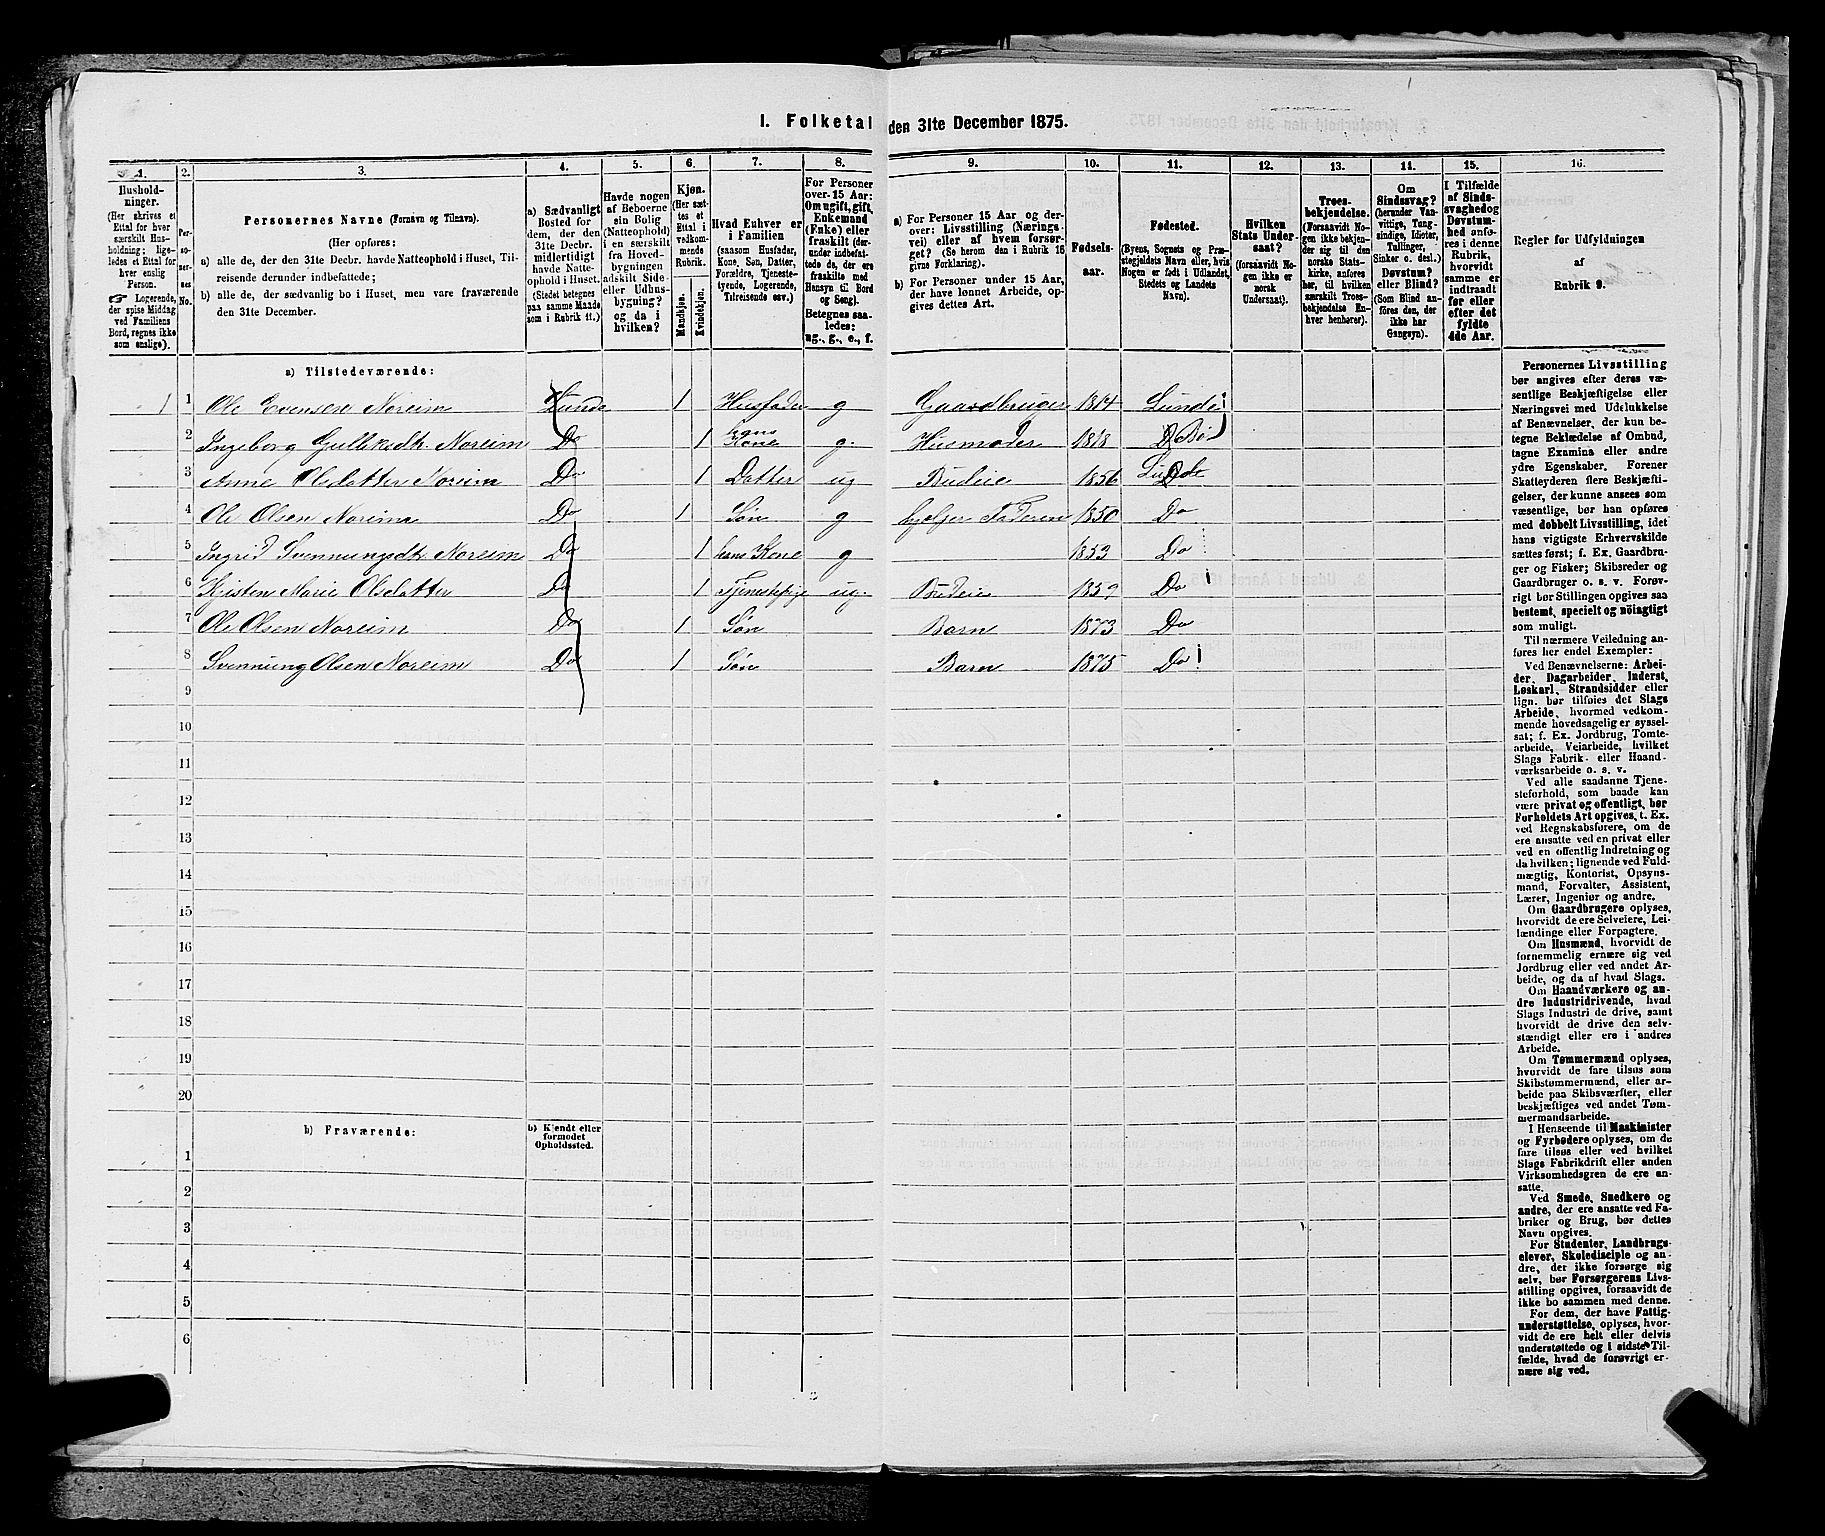 I. Folketal den 31te December 1875.
1. 2. 3. 4. 5. 6. 7. 8. 9. 10. 11. 12. 13. 14. 15. 16.
Husholdninger.
(Her skrives et
Ettal for hver
særskilt Husholdning; ligeledes
et Ettal for
hver enslig
Person.
☞ Logerende,
der spise Middag
ved Familiens
Bord, regnes ikke
som enslige).
Personernes No.
Personernes Navne (Fornavn og Tilnavn).
(Her opføres:
a) alle de, der den 31te Decbr. havde Natteophold i Huset, Tilreisende
derunder indbefattede;
b) alle de, der sædvanlig bo i Huset, men vare fraværende
den 31te December.
a) Sædvanligt
Bosted for
dem, der den
31te Decbr.
midlertidigt
havde Natteophold
i Huset.
(Stedet betegnes
paa samme Maade
som i Rubrik 11.)
Havde nogen
af Beboerne
sin Bolig
(Natteophold)
i en særskilt
fra Hovedbygningen
adskilt Side- eller
Udhusbygning?
og da i
hvilken?
Kjøn.
(Her sættes
et
Ettal i
vedkommende
Rubrik.
Mandkjøn.
Kvindekjøn.
Hvad Enhver er
i Familien
(saasom Husfader,
Kone, Søn, Datter,
Forældre, Tjenestetyende,
Logerende,
Tilreisende osv.)
For Personer
over 15 Aar:
Om ugift, gift,
Enkemand
(Enke) eller
fraskilt (derunder
indbefattede
de, der ere
fraskilte med
Hensyn til Bord
og Seng).
Betegnes saaledes:
ug., g., e., f.
a) For Personer 15 Aar og derover:
Livsstilling (Næringsvei)
eller af hvem forsørget?
(Se herom den i Rubrik 16
givne Forklaring).
b) For Personer under 15 Aar,
der have lønnet Arbeide, opgives
dettes Art.
Fødselsaar.
Fødested.
(Byens, Sognets og Præstegjeldets
Navn eller, hvis
Nogen er født i Udlandet,
Stedets og Landets
Navn).
Hvilken
Stats Undersaat?
(forsaavidt Nogen
ikke er
norsk
Undersaat).
Troesbekjendelse.
(Forsaavidt Nogen
ikke bekjender
sig til den
norske Statskirke,
anføres
her, til hvilken
særskilt Troesbekjendelse
Enhver
henhører).
Om
Sindssvag?
(herunder Vanvittige,
Tungsindige,
Idioter,
Tullinger,
Sinker o. desl.)
Døvstum?
eller Blind?
(Som Blind anføres
den, der
ikke har
Gangsyn).
I Tilfælde
af Sindssvaghed
og
Døvstumhed
anføres
i denne
Rubrik,
hvorvidt
samme er
indtraadt
før eller
efter det
fyldte
4de Aar.
Regler for Udfyldningen
af
Rubrik 9.
a) Tilstedeværende:
1 1 Ole Evensen Noreim Lunde 1 Husfader g Gaardbruger 1814 Lunde
2 Ingeborg Gulleksdtr. Noreim Do 1 hans Kone g. Husmoder 1818 Bø
3 Anne Olsdatter Noreim Do 1 Datter ug Budeie 1856 Lunde
4 Ole Olsen Noreim Do 1 Søn g hjelper Faderen 1850 Do
5 Ingrid Svennungsdtr. Noreim Do 1 hans Kone g 1853 Do
6 Kjisten Marie Olsdatter Do 1 Tjenestepige ug. Budeie 1859 Do
7 Ole Olsen Noreim Do 1 Søn Barn 1873 Do
8 Svennung Olsen Noreim Do 1 Søn Barn 1875 Do
9
10
11
12
13
14
15
16
17
18
19
20
b) Fraværende:
b) Kjendt eller
formodet
Opholdssted.
1
2
3
4
5
6
Personernes Livsstilling
bør angives efter deres væsentlige
Beskjæftigelse eller
Næringsvei med Udelukkelse
af Benævnelser, der kun betegne
Beklædelse af Ombud,
tagne Examina eller andre
ydre Egenskaber. Forener
Skatteyderen flere Beskjæftigelser,
der kunne ansees som
væsentlige, bør han opføres
med dobbelt Livsstilling, idet
hans vigtigste Erhvervskilde
sættes først; f. Ex. Gaardbruger
og Fisker; Skibsreder og
Gaardbruger o. s. v. Forøvrigt
bør Stillingen opgives saa
bestemt, specielt og nöiagtigt
som muligt.
Til nærmere Veiledning anføres
her endel Exempler:
Ved Benævnelserne: Arbeider,
Dagarbeider, Inderst,
Løskarl, Strandsidder eller
lign. bør tilføies det Slags
Arbeide, hvormed vedkommende
hovedsagelig er sysselsat;
f. Ex. Jordbrug, Tomtearbeide,
Veiarbeide, hvilket
Slags Fabrik- eller Haandværksarbeide
o. s. v.
Ved alle saadanne Tjenesteforhold,
som baade kan
være privat og offentligt, bør
Forholdets Art opgives, t. Ex.
ved Regnskabsførere, om de
ere ansatte ved en privat eller
ved en offentlig Indretning og
da hvilken; lignende ved Fuldmægtig,
Kontorist, Opsynsmand,
Forvalter, Assistent,
Lærer, Ingeniør og andre.
Om Gaardbrugere oplyses,
hvorvidt de ere Selveiere, Leilændinge
eller Forpagtere.
Om Husmænd, hvorvidt de
fornemmelig ernære sig ved
Jordbrug eller ved andet Arbeide,
og da af hvad Slags.
Om Haandværkere og andre
Industridrivende, hvad
Slags Industri de drive, samt
hvorvidt de drive den selvstændigt
eller ere i andres
Arbeide.
Om Tømmermænd oplyses,
hvorvidt de fare tilsøs som
Skibstømmermænd, eller arbeide
paa Skibsværfter, eller
beskjæftiges ved andet Tømmermandsarbeide.
I Henseende til Maskinister
og Fyrbødere oplyses, om de
fare tilsøs eller ved hvilket
Slags Fabrikdrift eller anden
Virksomhedsgren de ere ansatte.
Ved Smede, Snedkere og
andre, der ere ansatte ved Fabriker
og Brug, bør dettes
Navn opgives.
For Studenter, Landbrugselever,
Skoledisciple og andre,
der ikke forsørge sig
selv, bør Forsørgerens Livsstilling
opgives, forsaavidt de
ikke bo sammen med denne.
For dem, der have Fattigunderstøttelse,
oplyses, hvorvidt
de ere helt eller delvis
understøttede og i sidste Tilfælde,
hvad de forøvrigt ernære
sig ved.